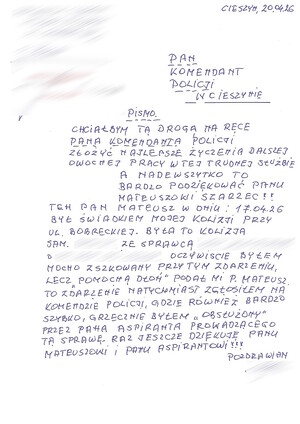 CIESZYN, 20.04.26
PAN
KOMENDANT
POLICJI
W CIESZYNIE
PISMO.
CHCIAŁBYM TĄ DROGĄ NA RĘCE
PANA KOMENDANTA POLICJI
ZŁOŻYĆ NAJLEPSZE ŻYCZENIA DALSZEJ
OWOCNEJ PRACY W TEJ TRUDNEJ SŁUŻBIE
A NADEWSZYTKO TO
BARDZO PODZIĘKOWAĆ PANU
MATEUSZOWI SZARZEC!!!
TEN PAN MATEUSZ W DNIU: 17.04.26
BYŁ ŚWIADKIEM MOJEJ KOLIZJI PRZY
UL. BOBRECKIEJ. BYŁA TO KOLIZJA
SAM. ZE SPRAWCĄ
O OCZYWIŚCIE BYŁEM
MOCNO ZSZKOWANY PRZY TYM ZDARZENIU,
LECZ „POMOCNĄ DŁOŃ" PODAŁ MI P. MATEUSZ.
TO ZDARZENIE NATYCHMIAST ZGŁOSIŁEM NA
KOMENDZIE POLICJI, GDZIE RÓWNIEŻ BARDZO
SZYBKO, GRZECZNIE BYŁEM „OBSŁUŻONY"
PRZEZ PANA ASPIRANTA PROWADZĄCEGO
TĄ SPRAWĘ. RAZ JESZCZE DZIĘKUJĘ PANU
MATEUSZOWI I PANU ASPIRANTOWI!!!
POZDRAWIAM